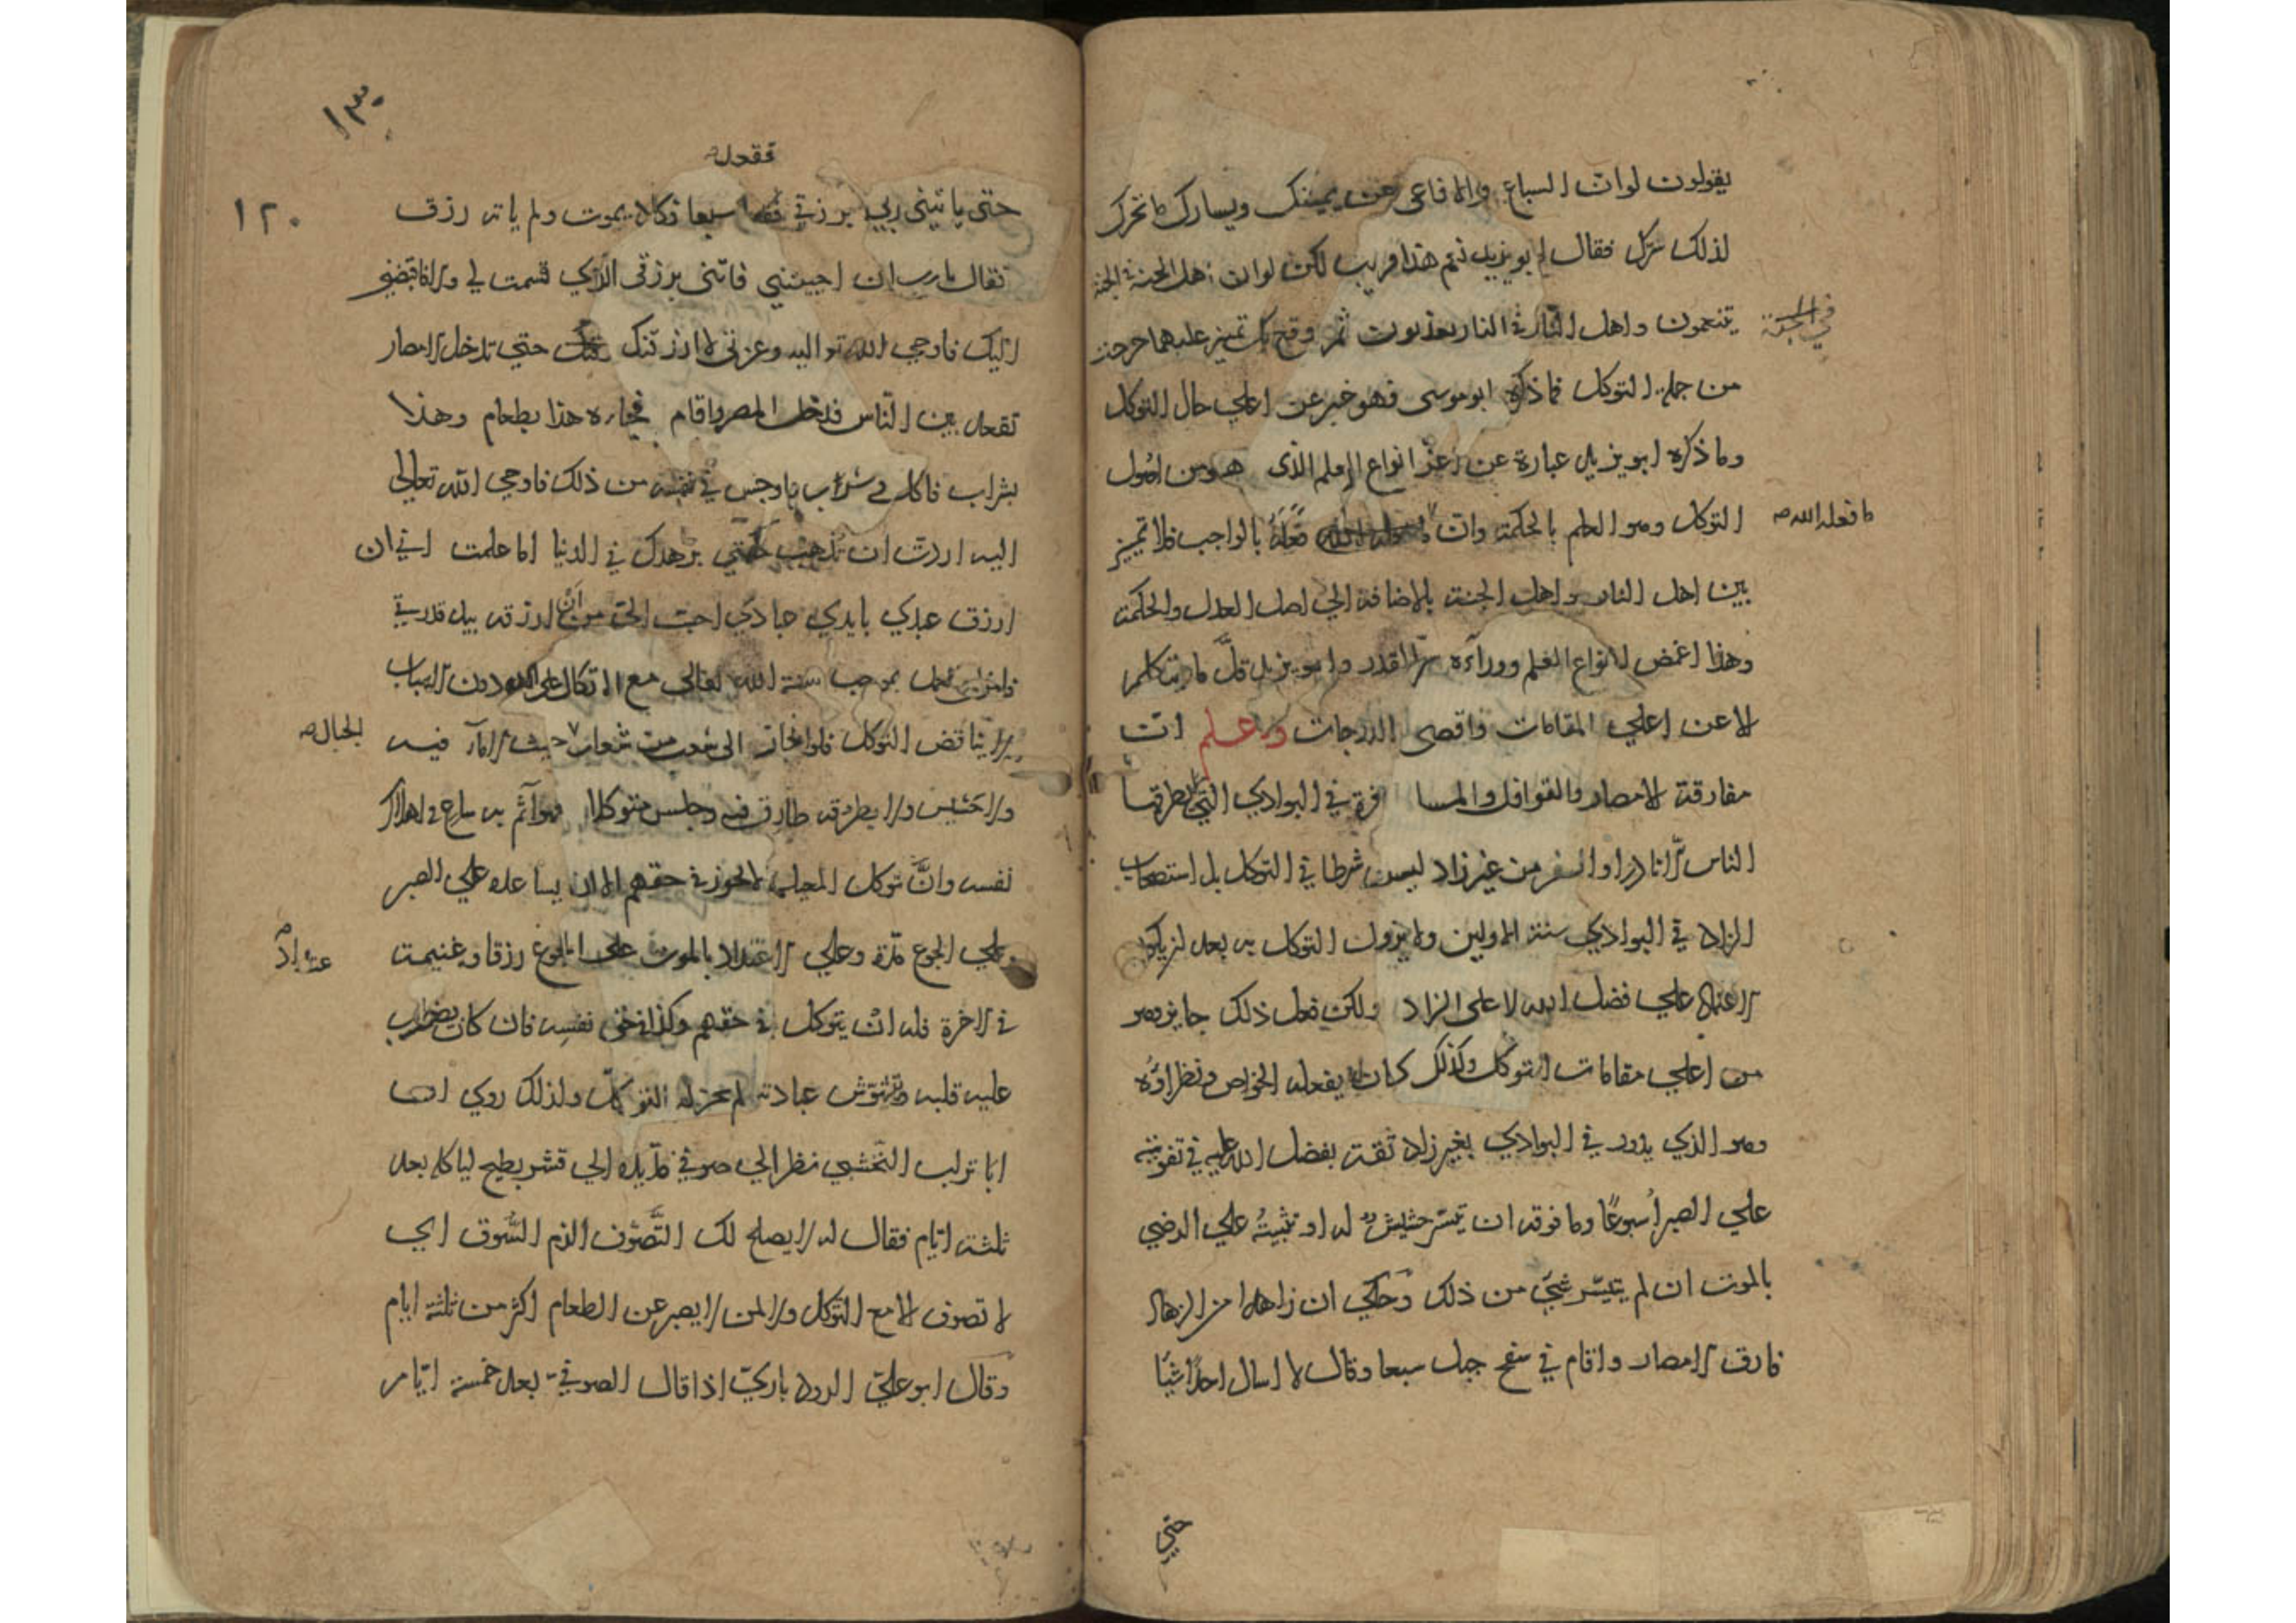 يقولون لو ان السباع والافاعى عن يمينك ويسارك ما تحرك
لذلك سرك فقال ابو يزيد نعم هذا قريب لكن لو ان اهل الجنة في الجنة
يتنعمون واهل النار في النار يعذبون ثم وقع بك تميز عليهما خرجت
في الجنة
من جملة التوكل فما ذكره ابو موسى فهو خبر عن اعلي حال التوكل
وما ذكره ابو يزيد عبارة عن اعز انواع العلم الذى هو من اصول
التوكل وهو العلم بالحكمة وان فعله بالواجب فلا تميز
ما فعله الله
بين اهل النار واهل الجنة بالاضافة الي اصل العدل والحكمة
وهذا اغمض انواع العلم ووراءه سر القدر وابو يزيد قل ما يتكلم
الا عن اعلي المقامات واقصى الدرجات واعلم ان
مفارقة الامصار والقوافل والمسافرة في البوادي التي لا يطرقها
الناس الا نادرا والسفر من غير زاد ليس شرطا في التوكل بل استصحاب
الزاد في البوادي سنة الاولين ولا يزول التوكل به بعد ان يكون
الاعتماد علي فضل الله لا على الزاد ولكن فعل ذلك جايز وهو
من اعلي مقامات التوكل ولذلك كان يفعله الخواص ونظراؤه
وهو الذي يدور في البوادي بغير زاد ثقة بفضل الله عليه في تقويته
علي الصبر اسبوعا وما فوقه ان تيسر حشيش له او تثبيته علي الرضي
بالموت ان لم يتيسر شيء من ذلك وحكي ان زاهدا من الزهاد
فارق الامصار واقام في سفح جبل سبعا وقال لا اسال احدا شيئا
حتي
١٣٠
١٢٠
فقعد
حتى ياتينى ربي برزقي سبعا فكاد يموت ولم ياته رزق
فقال يا رب ان احييتني فاتنى برزقى الذي قسمت لي والا فاقبضني
اليك فاوحي الله تع اليه وعزتي لا ارزقنك حتي تدخل الامصار
تقعد بين الناس فدخل المصر واقام فجاءه هذا بطعام وهذا
بشراب فاكل وشرب واوجس في نفسه من ذلك فاوحي الله تعالي
اليه اردت ان تذهب حكمتي بزهدك في الدنيا اما علمت اني ان
ارزق عبدي بايدي عبادي احب الي من ان ارزقه بيد قدرتي
بموجب سنة الله تعالي مع الاتكال على الله دون الاسباب
لا يناقض التوكل فلو انحاز الى شعب من شعاب حيث لا ماء فيه
الجبال
ولا حشيش ولا يطرقه طارق فيه وجلس متوكلا فهو اثم به ساع في اهلاك
نفسه وان توكل المعيل لا يجوز في حقهم الا ان يساعدوه علي الصبر
علي الجوع مدة وعلي الاعتداد بالموت على الجوع رزقا وغنيمة
في الاخرة فله ان يتوكل في حقهم وكذا في حق نفسه فان كان يضطرب
عليه قلبه وتتشوش عبادته لم يجز له التوكل ولذلك روي ان
ابا تراب النخشبي نظر الي صوفي مد يده الي قشر بطيخ لياكله بعد
ثلثة ايام فقال له لا يصلح لك التصوف الزم السوق اي
لا تصوف الا مع التوكل ولا لمن لا يصبر عن الطعام اكثر من ثلثة ايام
وقال ابو علي الرودباري اذا قال الصوفي بعد خمسة ايام